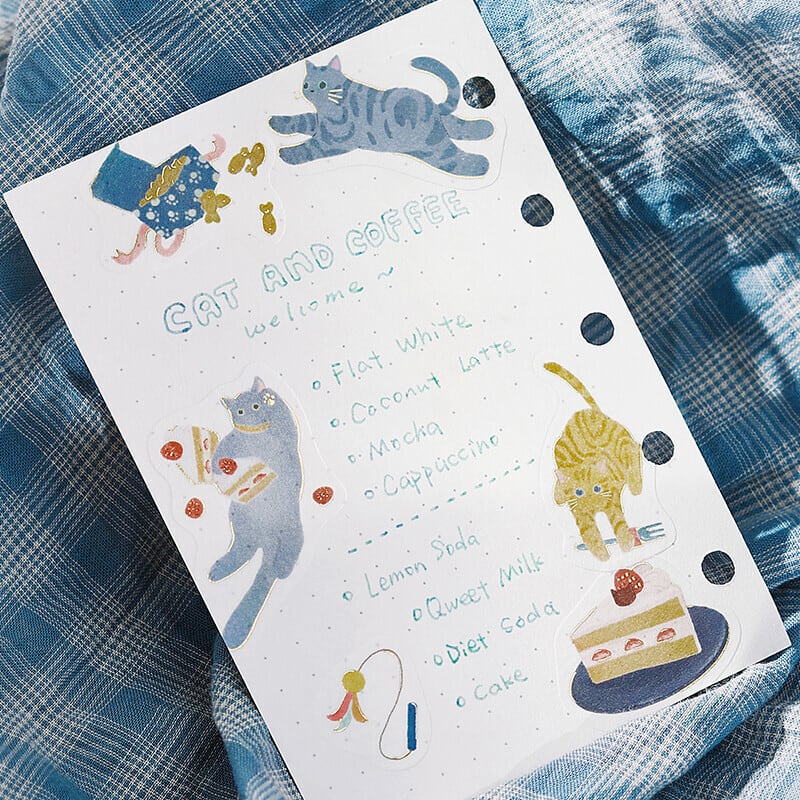 CAT AND COFFEE
welcome~
Flat White
Coconut Latte
Mocha
Cappuccino
Lemon Soda
Qweet Milk
Diet Soda
Cake